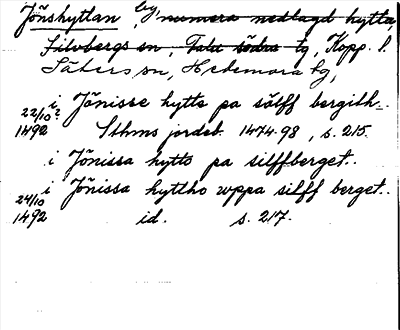 Jönshyttan, by, numera nedlagd hytta,
Silvbergs sn, Falu södra tg, Kopp. l.
Säters sn, Hedemora tg,
22/10? 1492 i Jönisse hytto pa sölff bergith..
Sthms jordeb. 1474-98, s. 215.
i Jönissa hytto pa silffberget..
24/10 1492 i Jönissa hyttho wppa silff berget..
id. s. 217.